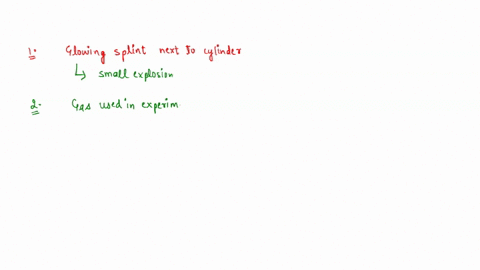 1. Glowing splint next to cylinder
↳ small explosion
2. Gas used in experim